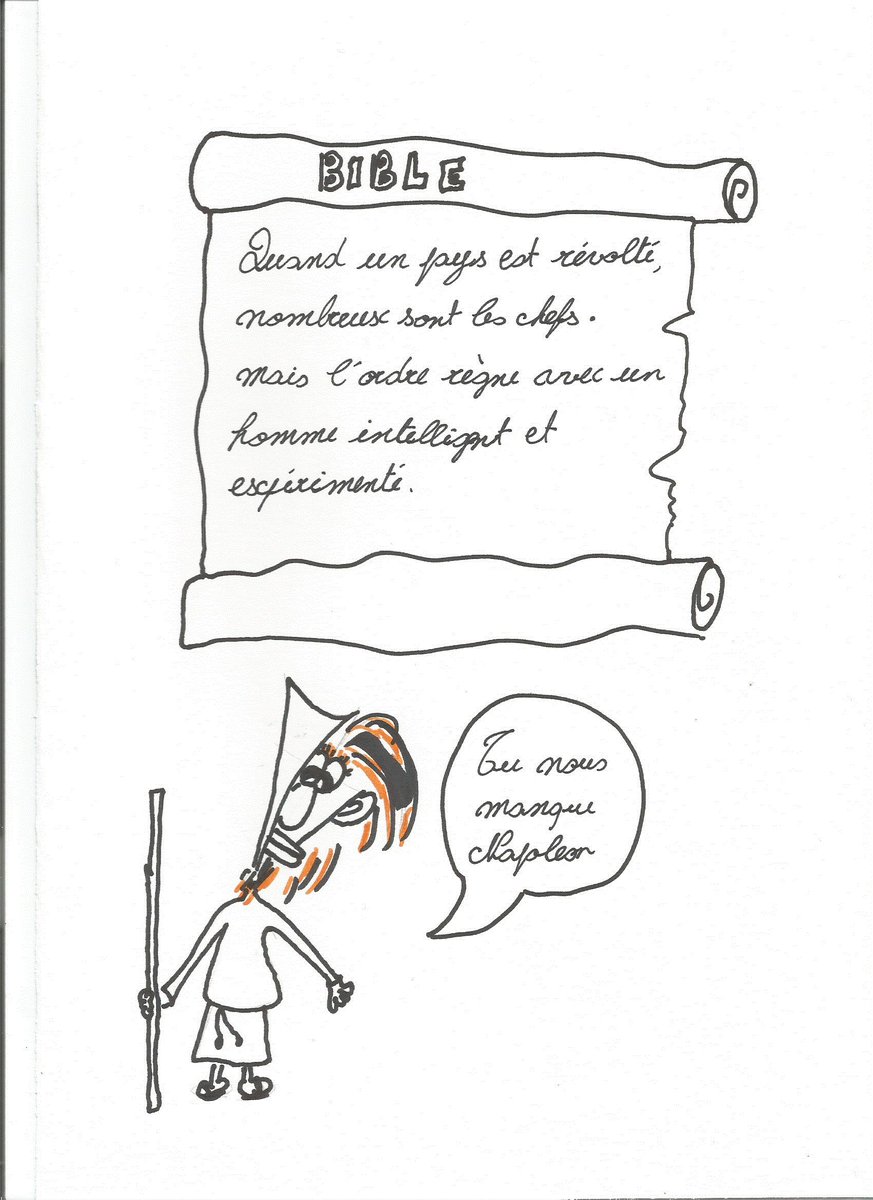 BIBLE
Quand un pays est révolté,
nombreux sont les chefs.
mais l'ordre règne avec un
homme intelligent et
expérimenté.
Tu nous
manque
Napoleon